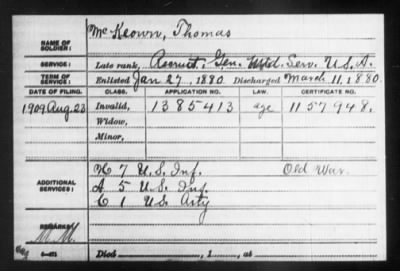 McKeown, Thomas
NAME OF SOLDIER:
SERVICE: Late rank, Recruit, Gen. Mtd. Serv. U.S.A.
TERM OF SERVICE: Enlisted Jan 27, 1880. Discharged March 11, 1880.
DATE OF FILING. CLASS. APPLICATION NO. LAW. CERTIFICATE NO.
1909 Aug. 23 Invalid, 1385413 age 1157948.
Widow,
Minor,
H 7 U.S. Inf. Old War.
ADDITIONAL SERVICES: A 5 U.S. Inf.
C 1 U.S. Arty
REMARKS:
Died , 1 , at